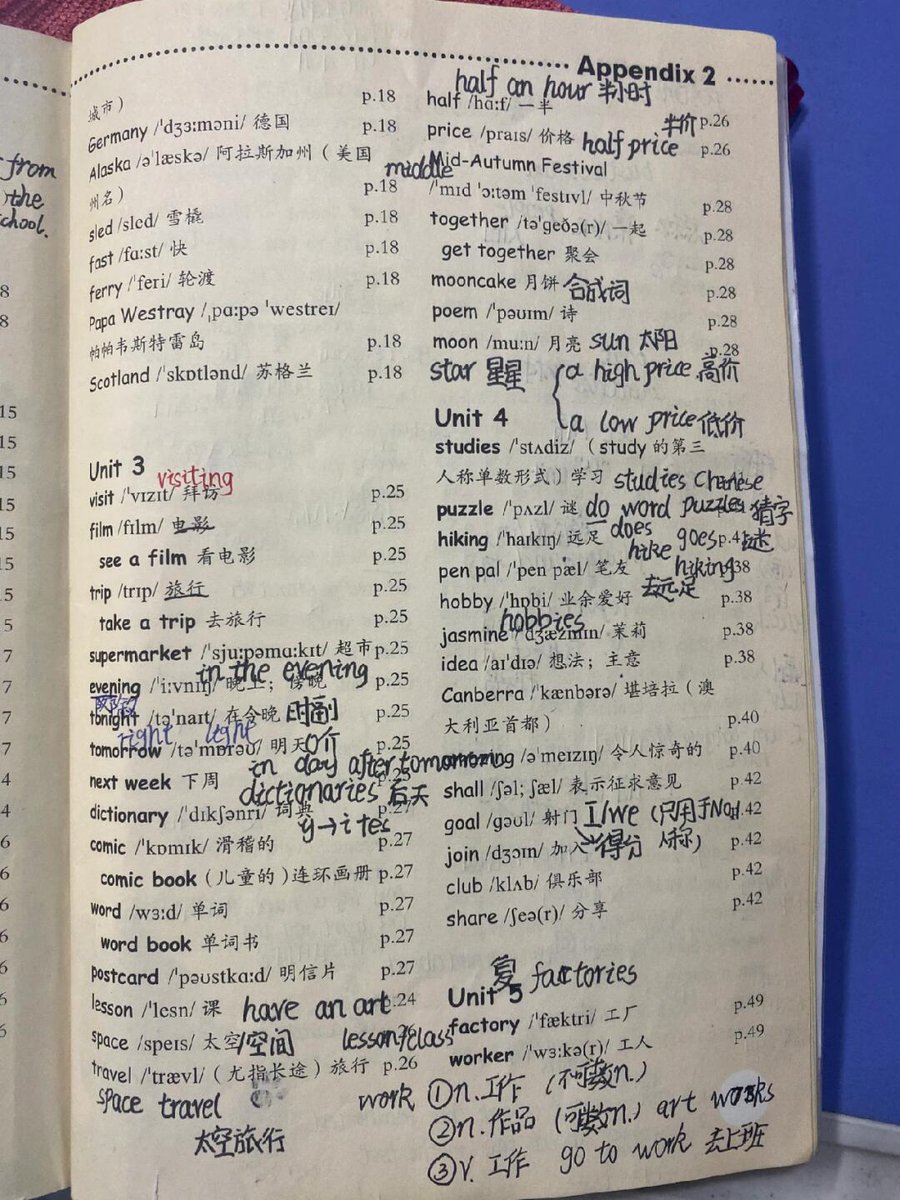 from
the
school.
8
8
15
15
15
15
5
5
7
7
7
4
4
6
6
6
6
6
6
Appendix 2
城市）
p.18
Germany /ˈdʒɜːməni/ 德国
p.18
Alaska /əˈlæskə/ 阿拉斯加州（美国
州名）
p.18
sled /sled/ 雪橇
p.18
fast /fɑːst/ 快
p.18
ferry /ˈferi/ 轮渡
p.18
Papa Westray /ˌpɑːpə ˈwestreɪ/
帕帕韦斯特雷岛
p.18
Scotland /ˈskɒtlənd/ 苏格兰
p.18
Unit 3
visiting
visit /ˈvɪzɪt/ 拜访
p.25
film /fɪlm/ 电影
p.25
see a film 看电影
p.25
trip /trɪp/ 旅行
p.25
take a trip 去旅行
p.25
supermarket /ˈsjuːpəmɑːkɪt/ 超市
p.25
in the evening
evening /ˈiːvnɪŋ/ 晚上；傍晚
p.25
tonight /təˈnaɪt/ 在今晚
p.25
right light
tomorrow /təˈmɒrəʊ/ 明天
p.25
in day after tomorrow
next week 下周
p.25
dictionaries 后天
dictionary /ˈdɪkʃənri/ 词典
p.27
y→i tes
comic /ˈkɒmɪk/ 滑稽的
p.27
comic book（儿童的）连环画册
p.27
word /wɜːd/ 单词
p.27
word book 单词书
p.27
postcard /ˈpəʊstkɑːd/ 明信片
p.27
lesson /ˈlesn/ 课
have an art
p.24
lesson/class
space /speɪs/ 太空
/空间
p.26
travel /ˈtrævl/（尤指长途）旅行
p.26
space travel
太空旅行
half an hour 半小时
half /hɑːf/ 一半
p.26
半价
price /praɪs/ 价格
half price
p.26
middle
Mid-Autumn Festival
/ˈmɪd ˈɔːtəm ˈfestɪvl/ 中秋节
p.28
together /təˈɡeðə(r)/ 一起
p.28
get together 聚会
p.28
mooncake 月饼
合成词
p.28
poem /ˈpəʊɪm/ 诗
p.28
moon /muːn/ 月亮
sun 太阳
p.28
star 星星
a high price 高价
a low price 低价
Unit 4
studies /ˈstʌdiz/（study 的第三
人称单数形式）学习
studies Chinese
puzzle /ˈpʌzl/ 谜
do word puzzles 猜字谜
does
hiking /ˈhaɪkɪŋ/ 远足
hike goes hiking
去远足
pen pal /ˈpen pæl/ 笔友
p.38
hobby /ˈhɒbi/ 业余爱好
p.38
hobbies
jasmine /ˈdʒæzmɪn/ 茉莉
p.38
idea /aɪˈdɪə/ 想法；主意
p.38
Canberra /ˈkænbərə/ 堪培拉（澳
大利亚首都）
p.40
amazing /əˈmeɪzɪŋ/ 令人惊奇的
p.40
shall /ʃəl; ʃæl/ 表示征求意见
p.42
I/we（只用于No.1人称）
goal /ɡəʊl/ 射门
得分
p.42
join /dʒɔɪn/ 加入
p.42
club /klʌb/ 俱乐部
p.42
share /ʃeə(r)/ 分享
p.42
Unit 5
复 factories
factory /ˈfæktri/ 工厂
p.49
worker /ˈwɜːkə(r)/ 工人
p.49
work
①n.工作（不可数n.）
②n.作品（可数n.）art works
③v.工作 go to work 去上班
73